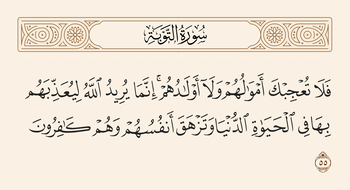 سُورَةُ التَّوْبَةِ
فَلَا تُعْجِبْكَ أَمْوَٰلُهُمْ وَلَآ أَوْلَـٰدُهُمْ ۚ إِنَّمَا يُرِيدُ ٱللَّهُ لِيُعَذِّبَهُم
بِهَا فِى ٱلْحَيَوٰةِ ٱلدُّنْيَا وَتَزْهَقَ أَنفُسُهُمْ وَهُمْ كَـٰفِرُونَ
٥٥